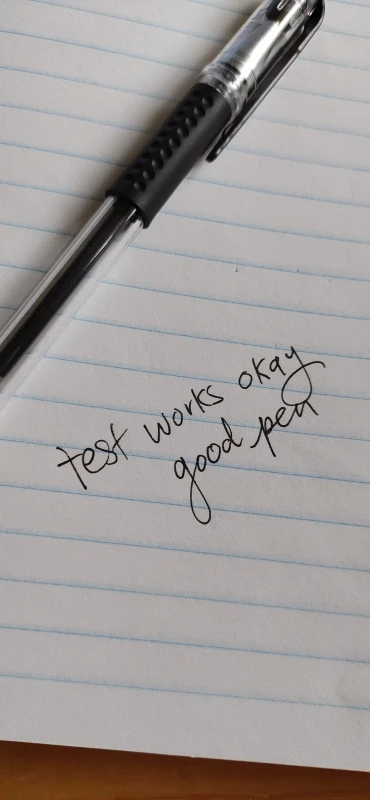 test works okay
good pen